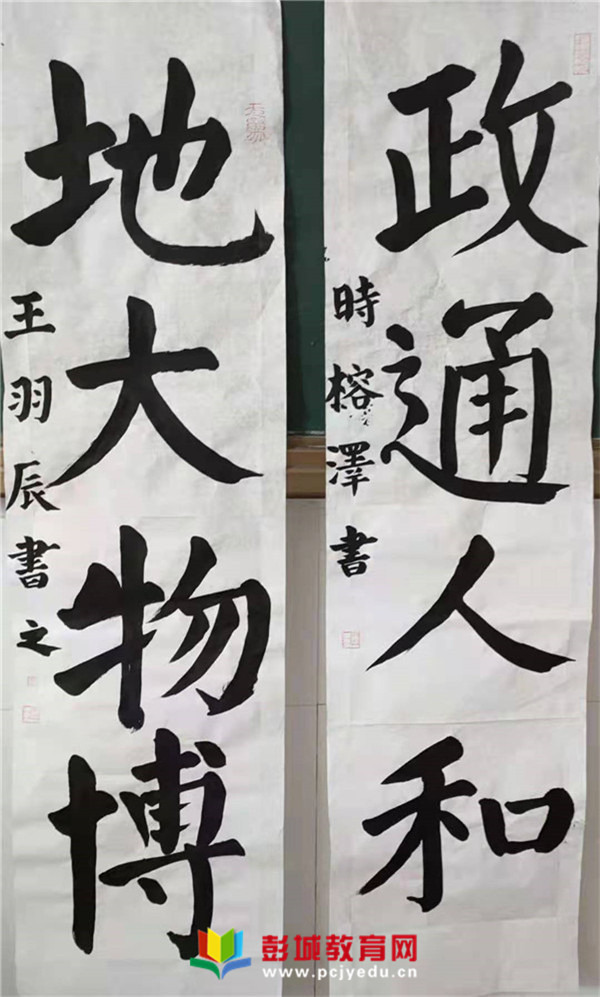 政通人和
時榕澤書
地大物博
王羽辰書之
彭城教育网
www.pcjyedu.cn